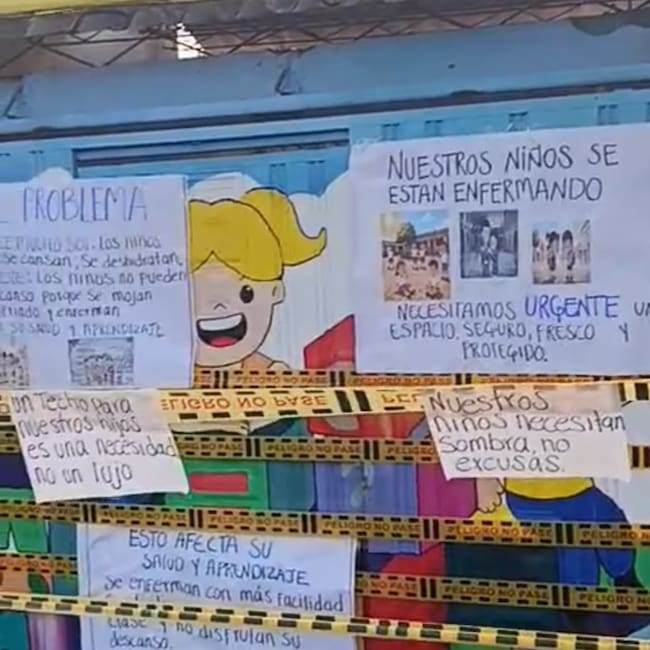 PROBLEMA
MUCHO SOL: LOS NIÑOS
Se cansan, Se deshidratan
LOS NIÑOS NO pueden
Porque Se mojan
y enferman
SALUD Y APRENDIZAJE
NUESTROS NIÑOS SE
ESTAN ENFERMANDO
NECESITAMOS URGENTE UN
ESPACIO, SEGURO, FRESCO Y
PROTEGIDO.
PELIGRO NO PASE
PELIGRO NO PASE
PELIGRO NO PASE
un Techo Para
nuestros niños
es una necesidad
no un lujo
Nuestros
niños necesitan
Sombra, no
excusas.
PELIGRO NO PASE
PELIGRO NO PASE
PELIGRO NO PASE
PELIGRO NO PASE
PELIGRO NO PASE
ESTO AFECTA SU
SALUD Y APRENDIZAJE
Se enferman con más facilidad
Clase y no disfrutan su
descanso.